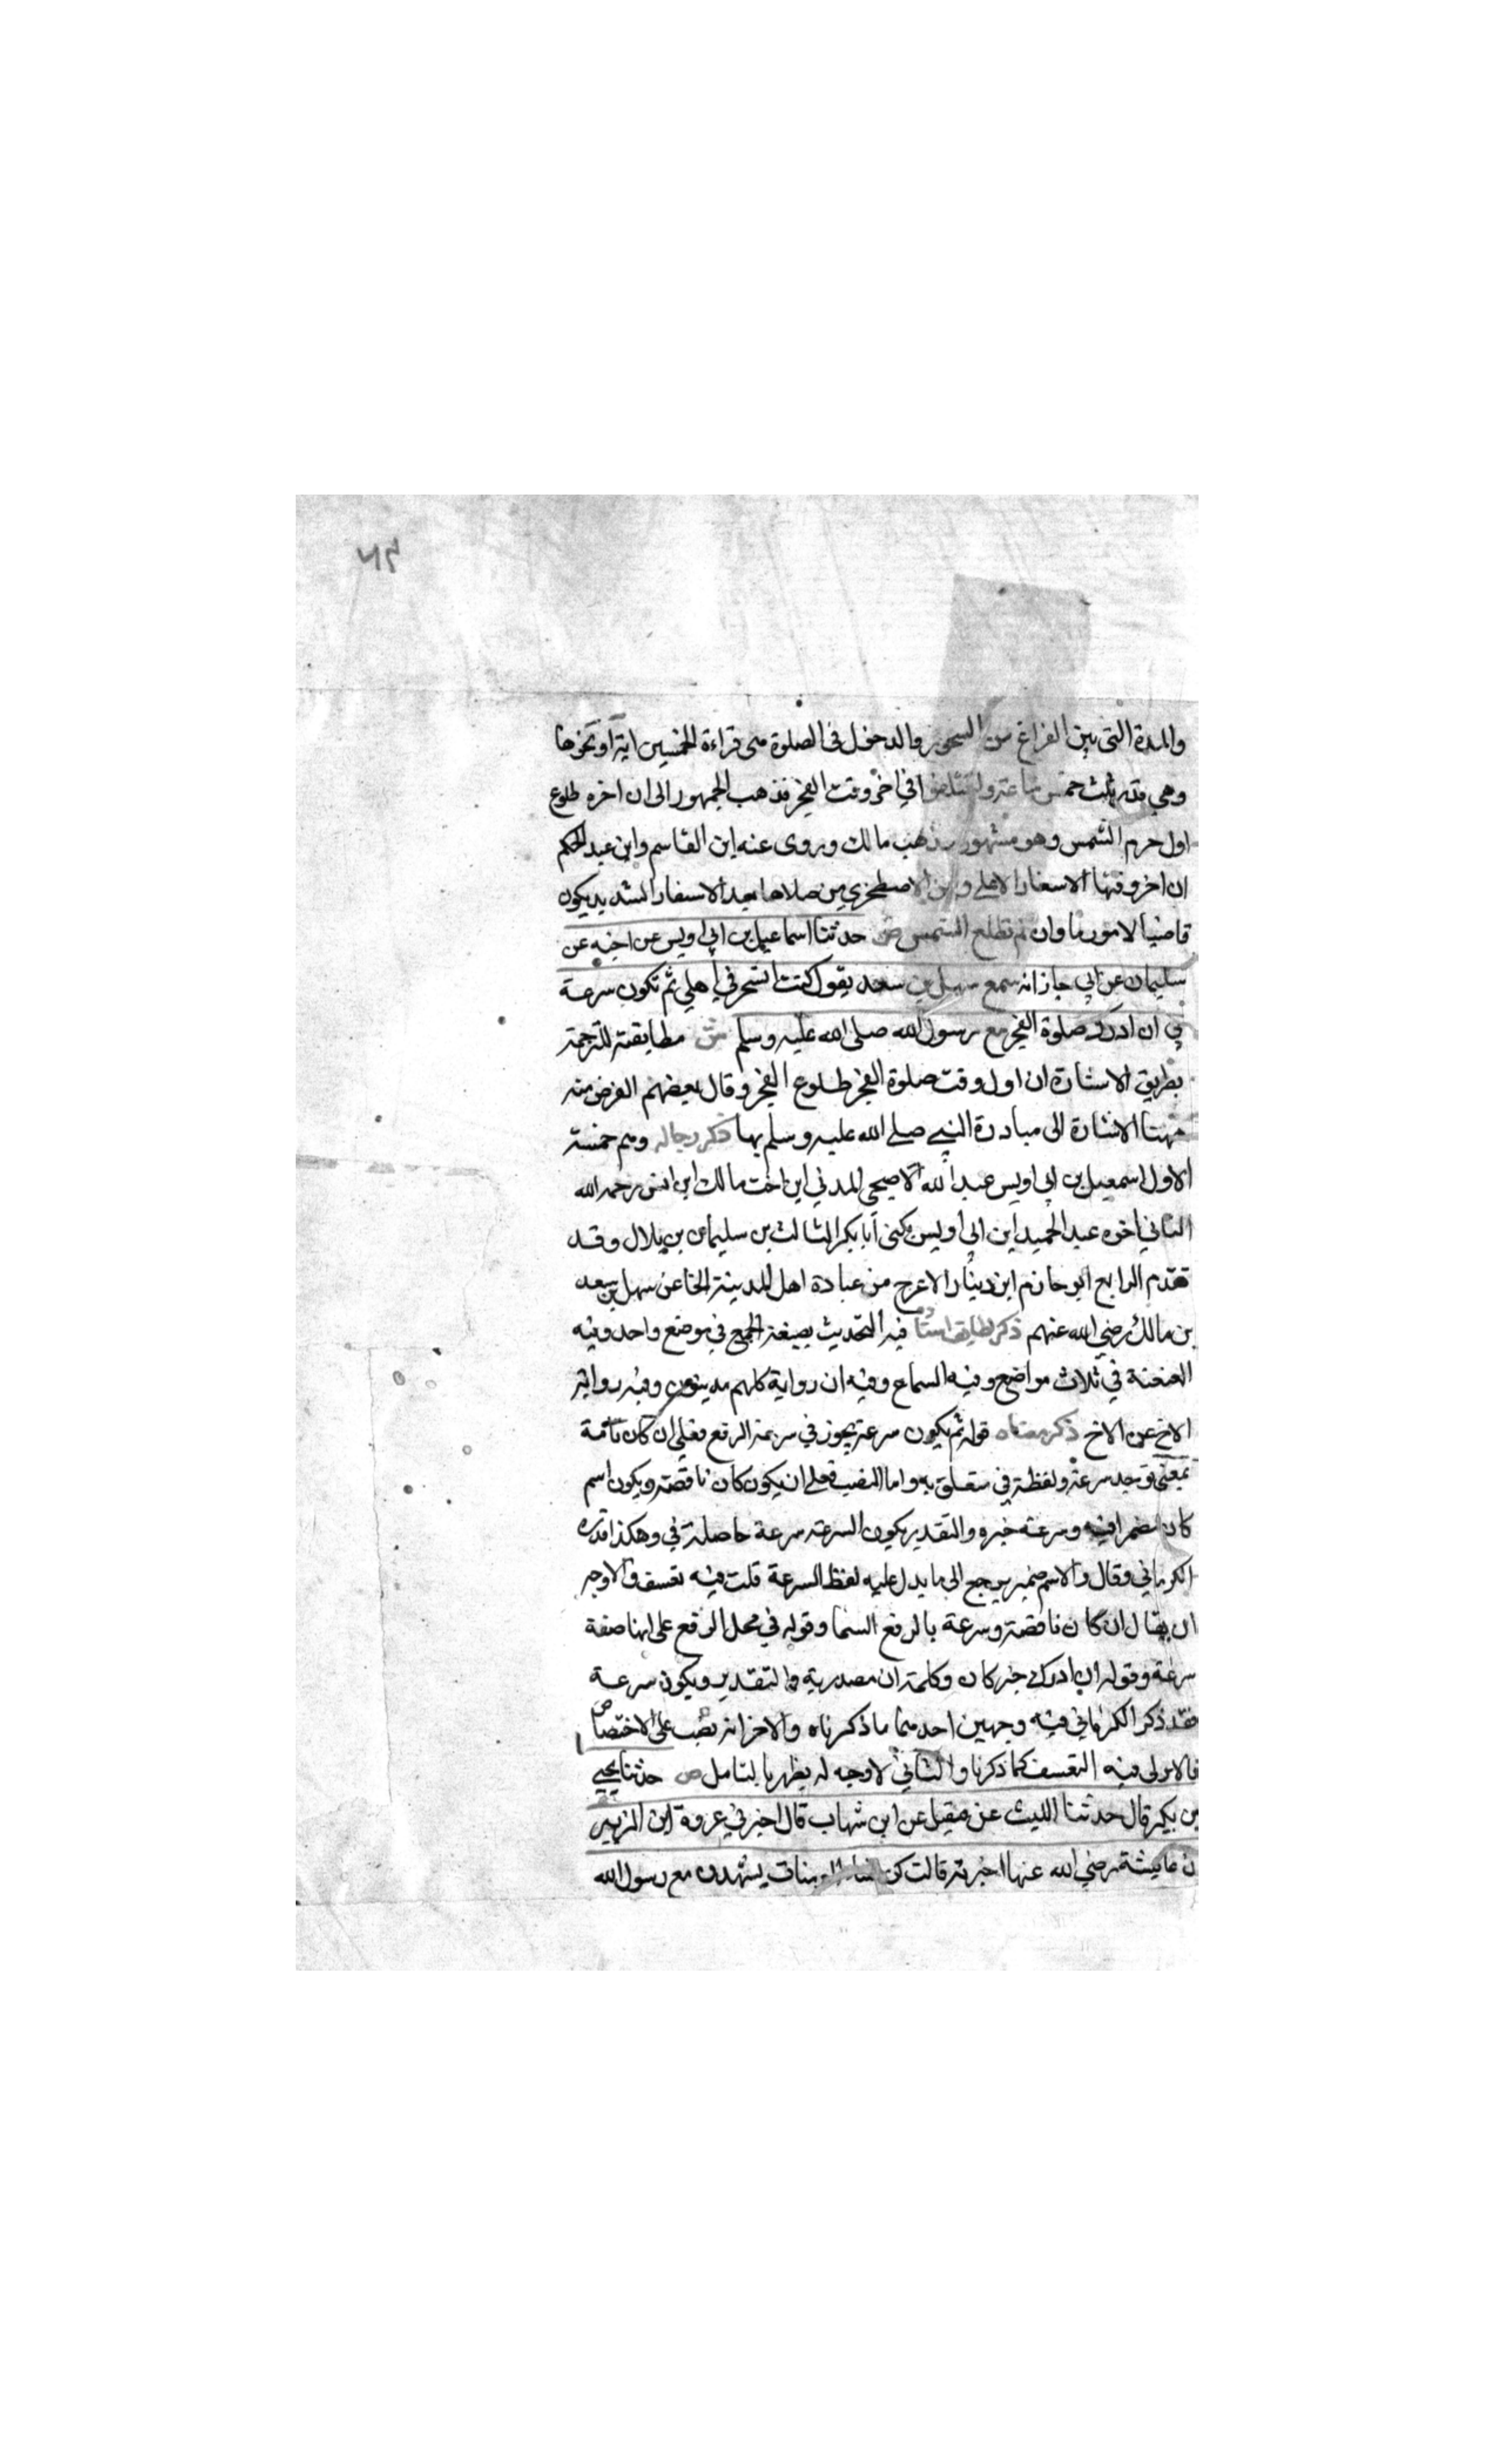 ٧٣
والمدة التي بين الفراغ من السحور والدخول في الصلوة هي قراءة الخمسين اية او نحوها
وهي قدر ثلث خمس ساعة واختلفوا في اخر وقت الفجر فذهب الجمهور الى ان اخره طلوع
اول جرم الشمس وهو مشهور مذهب مالك وروى عنه ابن القاسم وابن عبد الحكم
ان اخر وقتها الاسفار الاعلى وعن الاصطخري من صلاها بعد الاسفار الشديد يكون
قاضيا لا موديا وان لم تطلع الشمس ص حدثنا اسماعيل بن ابي اويس عن اخيه عن
سليمان عن ابي حازم انه سمع سهل بن سعد يقول كنت اتسحر في اهلي ثم تكون سرعة
بي ان ادرك صلوة الفجر مع رسول الله صلى الله عليه وسلم ش مطابقته للترجمة
بطريق الاشارة ان اول وقت صلوة الفجر طلوع الفجر وقال بعضهم الغرض منه
ههنا الاشارة الى مبادرة النبي صلى الله عليه وسلم بها ذكر رجاله وهم خمسة
الاول اسمعيل بن ابي اويس عبد الله الاصبحي المدني ابن اخت مالك ابن انس رحمه الله
الثاني اخوه عبد الحميد ابن ابي اويس يكنى أبا بكر الثالث بن سليمان بن بلال وقد
تقدم الرابع ابو حازم ابن دينار الاعرج من عبادة اهل المدينة الخا عن سهل بن سعد
بن مالك رضي الله عنهم ذكر لطايف اسناده فيه التحديث بصيغة الجمع في موضع واحد وفيه
العنعنة في ثلاث مواضع وفيه السماع وفيه ان رواية كلهم مدينون وفيه رواية
الاخ عن الاخ ذكر معناه قوله ثم يكون سرعة يجوز في سرعة الرفع فعلى ان كان تامة
بمعنى توجد سرعة ولفظة بي متعلق به واما النصب فعلى ان يكون كان ناقصة ويكون اسم
كان مضمرا فيه وسرعة خبره والتقدير يكون السرعة سرعة حاصلة في وهكذا قدره
الكرماني وقال والاسم ضمير يرجع الى ما يدل عليه لفظ السرعة قلت فيه تعسف والاوجه
ان يقال ان كان ناقصة وسرعة بالرفع اسمها وقوله في محل الرفع على انها صفة
سرعة وقوله ان ادرك خبر كان وكلمة ان مصدرية والتقدير ويكون سرعة
فقد ذكر الكرماني فيه وجهين احدهما ما ذكرناه والاخر انه نصب على الاختصاص
فالاولى فيه التعسف كما ذكرنا والثاني لا وجه له يظهر بالتامل ص حدثنا يحيي
بن بكير قال حدثنا الليث عن عقيل عن ابن شهاب قال اخبرني عروة ابن الزبير
ان عايشة رضي الله عنها اخبرته قالت كن نساء المومنات يشهدن مع رسول الله